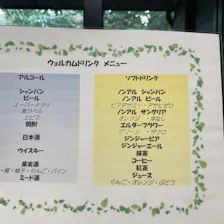 ウェルカムドリンク メニュー
アルコール
シャンパン
ビール
スーパードライ
黒ラベル
エビス
焼酎
日本酒
ウイスキー
果実酒
・柚子・りんご・パイン
ミード酒
ソフトドリンク
ノンアル シャンパン
ノンアル ビール
ノンアル サングリア
オレンジ
エルダーフラワー
グリーン・ザクロ
ジンジャービア
ジンジャーエール
抹茶
コーヒー
紅茶
ジュース
りんご・オレンジ・ぶどう